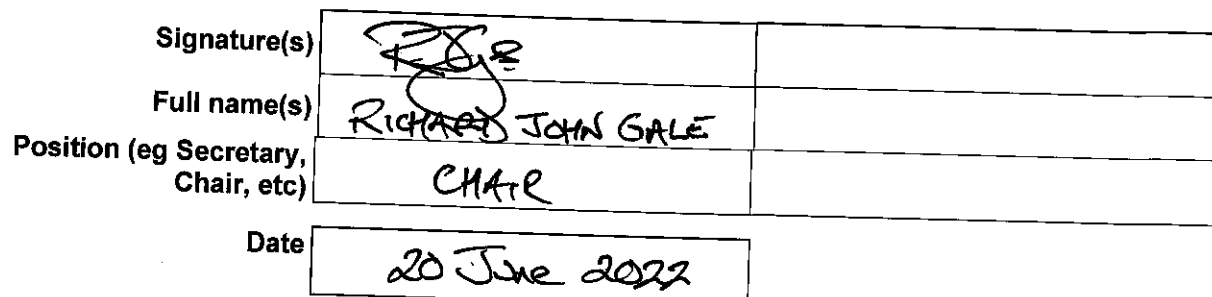 Signature(s)
Full name(s) RICHARD JOHN GALE
Position (eg Secretary,
Chair, etc) CHAIR
Date 20 June 2022